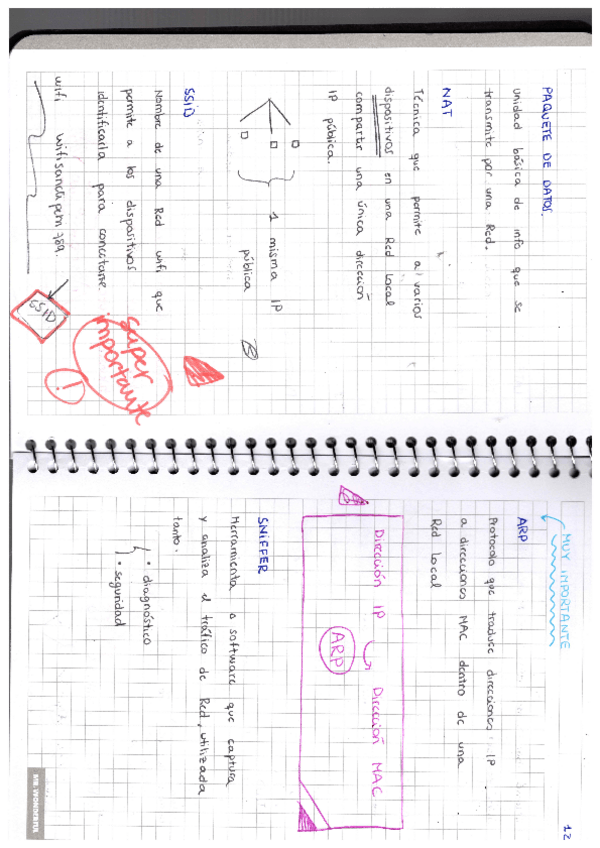 PAQUETE DE DATOS.
unidad básica de info que se
transmite por una Red.
NAT
Técnica que permite a varios
dispositivos en una Red Local
compartir una única dirección
IP pública.
1 misma IP
pública
SSID
Nombre de una Red wifi que
permite a los dispositivos
identificarla para conectarse.
wifi
SSID
super
importante
!
12
MUY IMPORTANTE
ARP
Protocolo que traduce direcciones IP
a direcciones MAC dentro de una
Red Local
Dirección IP Dirección MAC
ARP
SNIFFER
Herramienta o software que captura
y analiza el tráfico de Red, utilizada
tanto.
· diagnóstico
· seguridad
MR. WONDERFUL